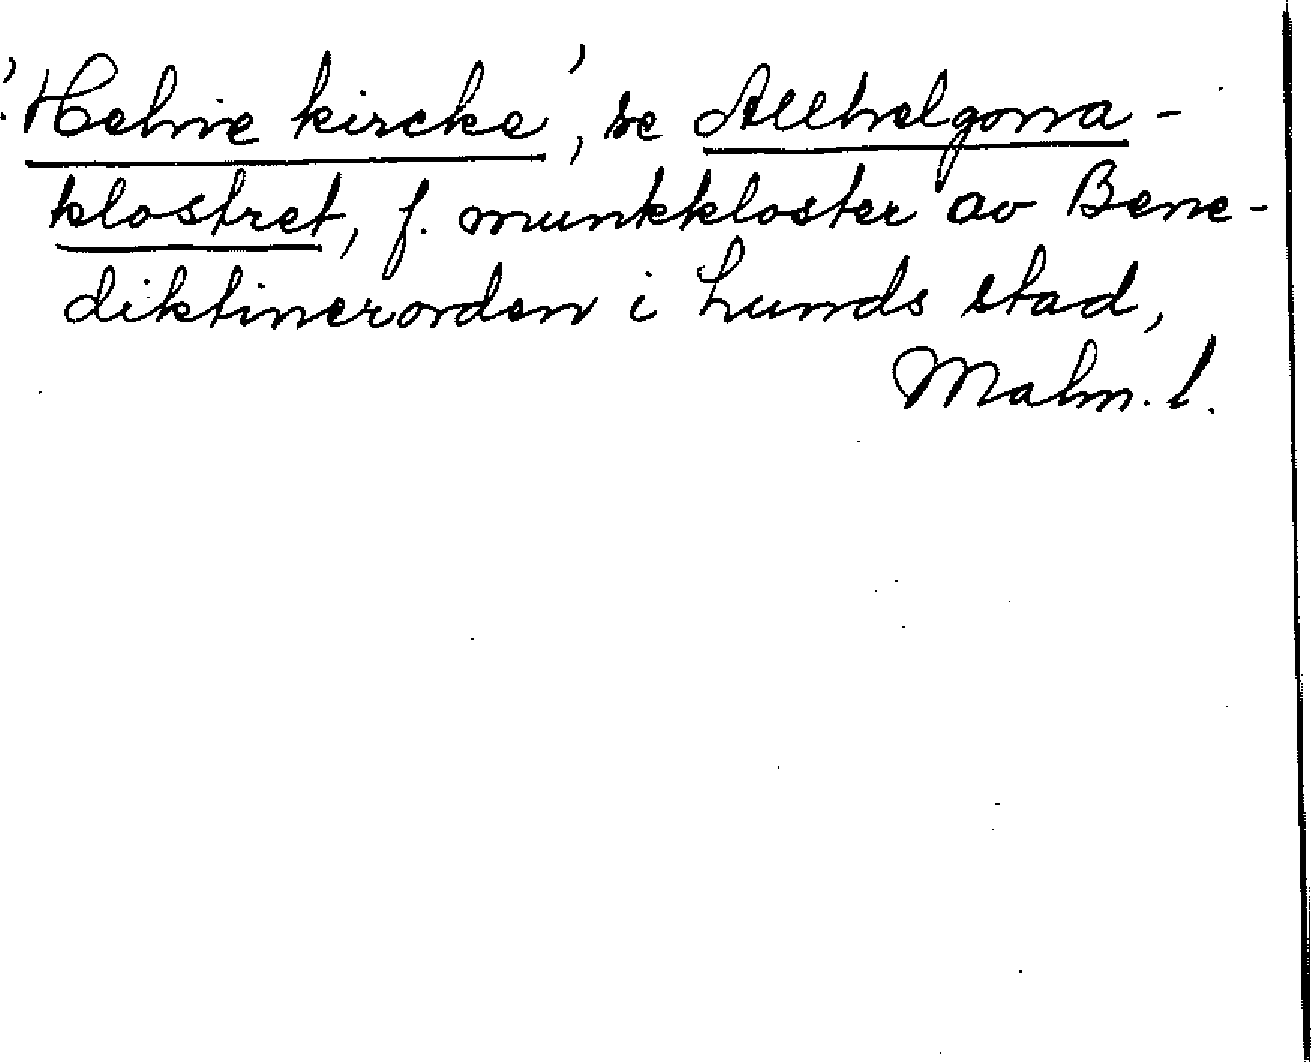 'Helne kircke', se Allhelgona-
klostret, f. munkkloster av Bene-
diktinerorden i Lunds stad,
Malm. l.